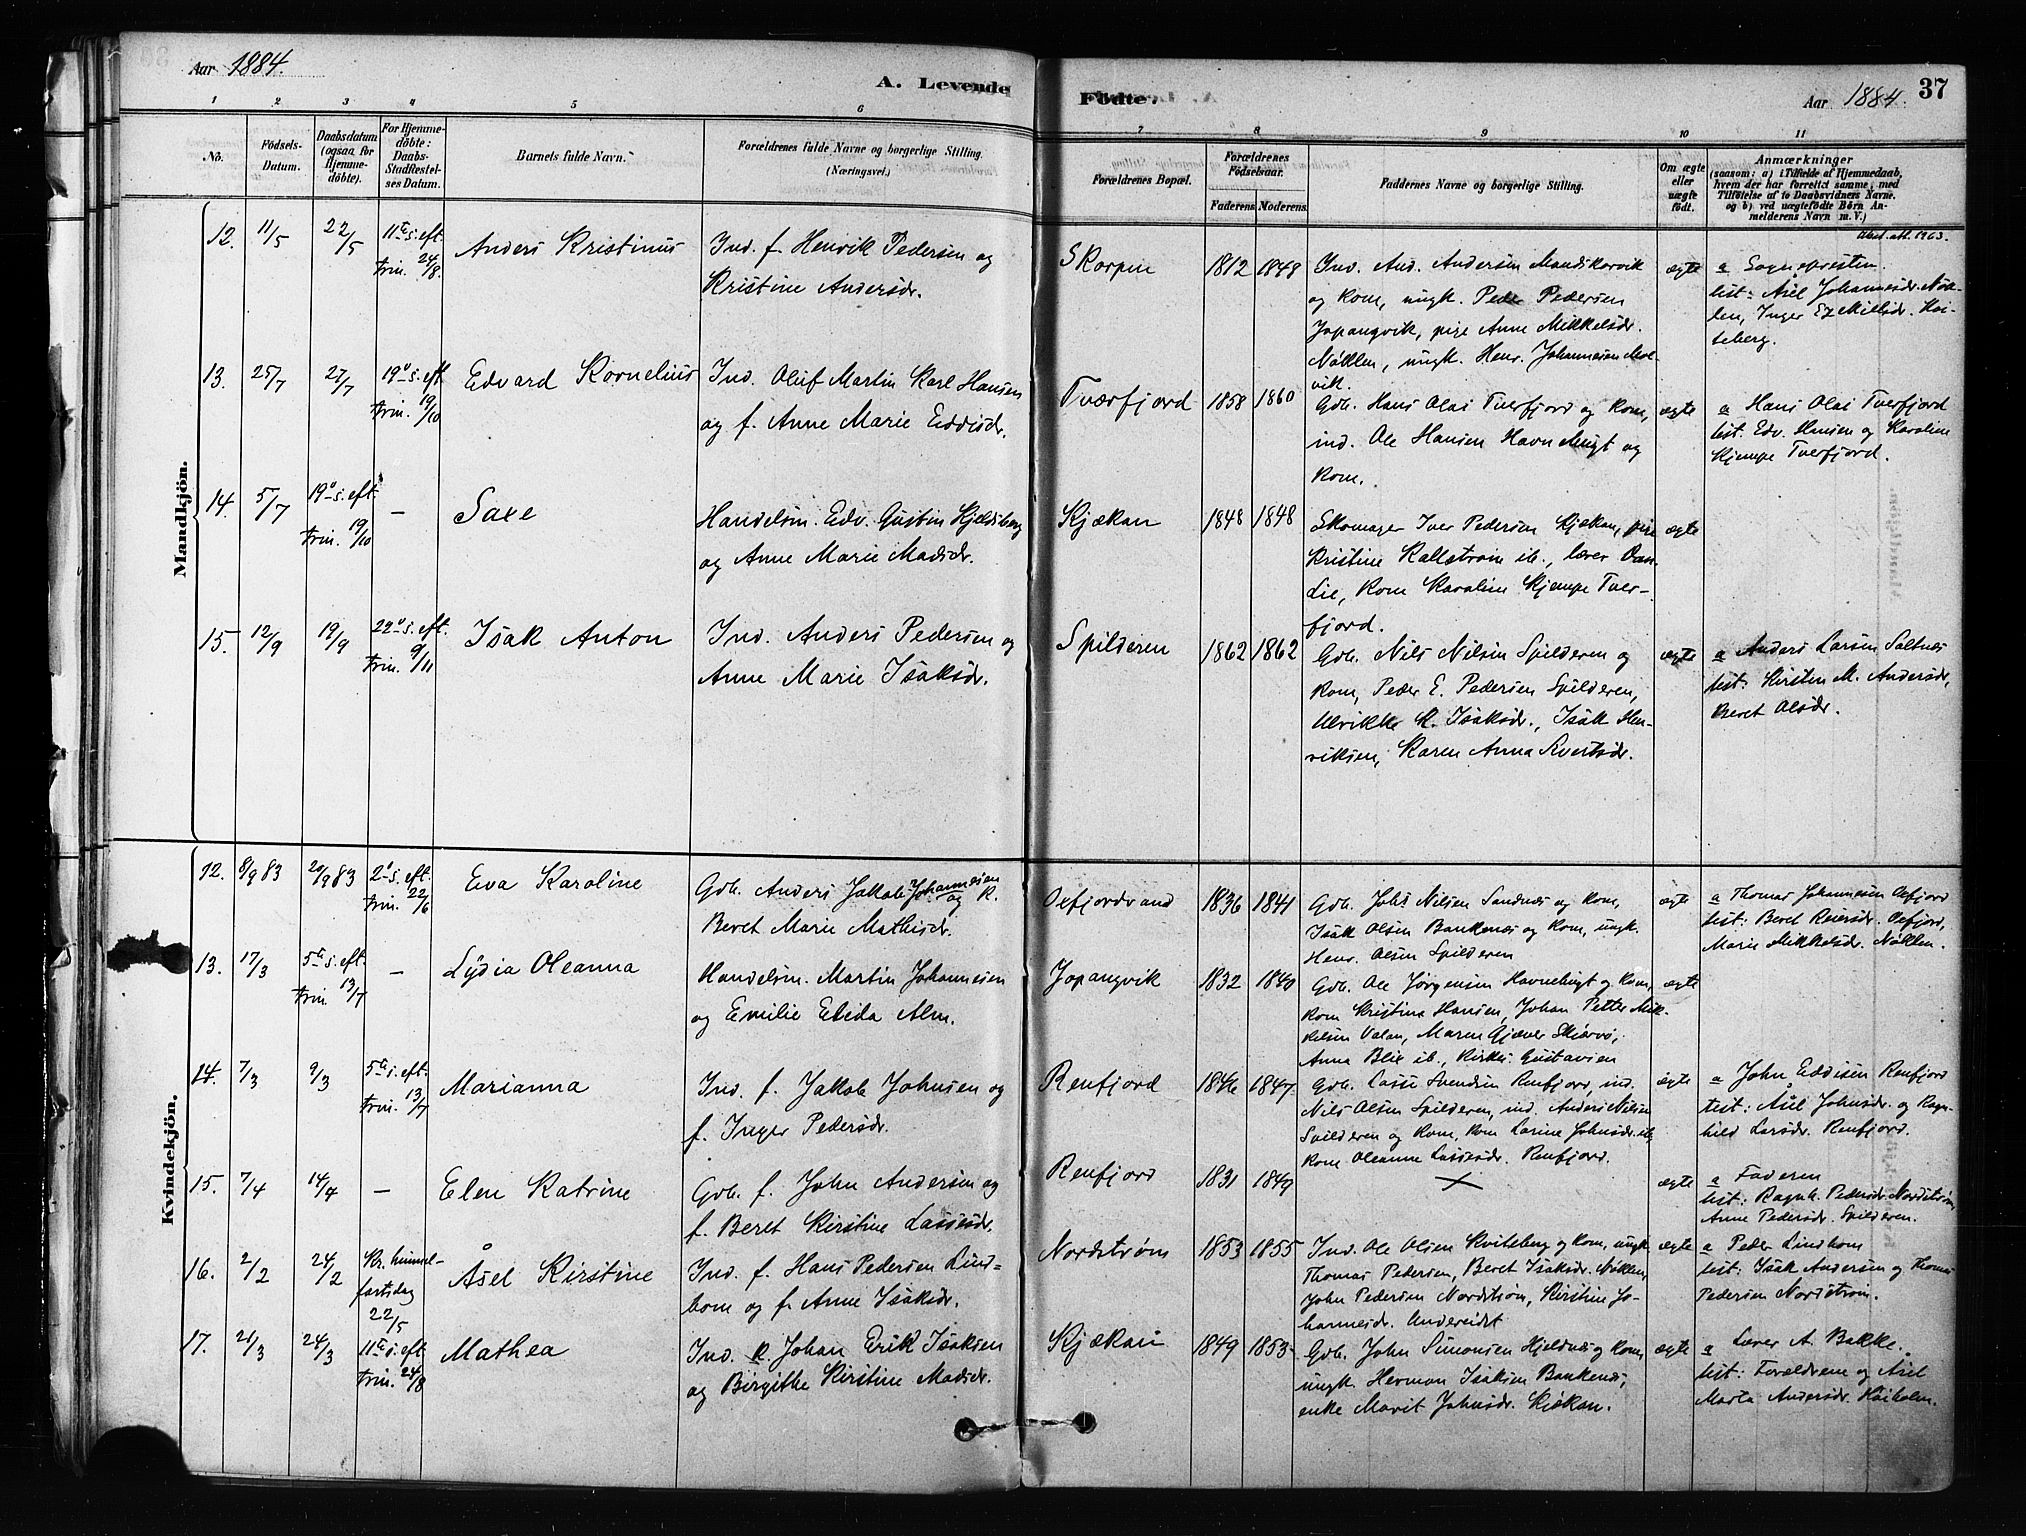 Aar 1884.
A. Levende
Födte.
Aar 1884.
37
1 2 3 4 5 6 7 8 9 10 11
No.
Födsels-
Datum.
Daabsdatum
(ogsaa for
Hjemme-
döbte).
For Hjemme-
döbte:
Daabs-
Stadfæstel-
ses Datum.
Barnets fulde Navn.
Forældrenes fulde Navne og borgerlige Stilling.
(Næringsvei.)
Forældrenes Bopæl.
Forældrenes
Födselsaar.
Faderens Moderens
Faddernes Navne og borgerlige Stilling.
Om ægte
eller
uægte
födt.
Anmærkninger
(saasom: a) i Tilfælde af Hjemmedaab,
hvem der har forrettet samme, med
Tilföielse af to Daabsvidners Navne.
og b) ved uægtefödte Börn An-
melderens Navn m. V.)
Mandkjön.
12. 11/5 22/5 11te s. eft.
trin. 24/8.
Anders Kristinus
Ind. f. Henrik Pedersen og
Kristine Andersdr.
Skorpen 1812 1848
Ind. And. Andersen Mandskarvik
og kom, ungk. Peder Pedersen
Jopangvik, pige Anne Mikkelsdr.
Nøklen, ungk. Henr. Johannesen
vik.
ægte
att. 1963.
a Sognepresten.
test: Asel Johannesdr. Nøk-
len, Inger Ezekilsdr. Kvi-
teberg.
13. 25/7 27/7 19de s. eft
trin. 19/10
Edvard Kornelius
Ind. Oluf Martin Karl Hansen
og f. Anne Marie Eddisdr.
Tværfjord 1858 1860
Gdb. Hans Olai Tverfjord og kom,
ind. Ole Hansen Havnebugt og
kom.
ægte
a Hans Olai Tverfjord
test. Edv. Hansen og Karoline
Kjempe Tverfjord.
14. 5/7 19de s. eft.
trin. 19/10 –
Saxe
Handelsm. Edv. Gustin Kjeldsberg
og Anne Marie Madsdr.
Kjækan 1848 1848
Skomager Iver Pedersen Kjækan, pige
Kristine Kallstrøm ib., lærer Dan.
Lie, kom Karoline Kjempe Tver-
fjord.
ægte
15. 12/9 19/9 22de s. eft.
trin. 9/11
Isak Anton
Ind. Anders Pedersen og
Anne Marie Isaksdr.
Spilderen 1862 1862
Gdb. Nils Nilsen Spilderen og
kom, Peder E. Pedersen Spilderen,
Ulrikke K. Isaksdr., Isak Hen-
riksen, Karen Anna Sivertsdr.
ægte
a Anders Larsen Saltnes
test: Kirsten M. Andersdr,
Beret Olsdr.
Kvindekjön.
12. 8/9 83 20/9 83 2de s. eft.
trin. 22/6
Eva Karoline
Gdb. Anders Jakob Johannesen
og K.
Beret Marie Mathisdr.
Oxfjordvand 1836 1841
Gdb. Johs Nilsen Sandnes og kom,
Isak Olsen Bankenes og kom, ungk.
Henr. Olsen Spilderen
ægte
a Thomas Johannesen Oxfjord
test: Beret Reiersdr. Oxfjord,
Marie Mikkelsdr. Nøklen.
13. 17/3 5te s. eft.
trin. 13/7 –
Lydia Oleanna
Handelsm. Martin Johannesen
og Emilie Elida Alm.
Jopangvik 1832 1840
Gdb. Ole Jørgensen Havnebugt og kom,
kom Kristina Hansen, Johan Petter Mik-
kelsen Valan, Maren Gjæver Skjærvø,
Anna Blix ib., Kirkes. Gustavsen
ægte
14. 7/3 9/3 5te s. eft.
trin. 13/7
Marianna
Ind. f. Jakob Johnsen og
f. Inger Pedersdr.
Renfjord 1846 1847
Gdb. Lasse Svendsen Renfjord, ind.
Nils Olsen Spilderen, ind. Anders Nilsen
Spilderen og kom, kom Larine Johnsdr. ib
kom Oleanne Lassesdr. Renfjord.
ægte
a John Eddisen Renfjord
test: Åsel Johnsdr. og Ragn-
hild Larsdr. Renfjord.
15. 7/4 14/4 –
Elen Katrine
Gdb. f. John Andersen og
f. Beret Kirstine Lassesdr.
Renfjord 1831 1849
×
ægte
a Faderen
test: Ragnh. Pedersdr. Nordstrøm,
Anne Pedersdr. Spilderen.
16. 2/2 24/2 Kr. himmel-
fartsdag
22/5
Åsel Kirstine
Ind. f. Hans Pedersen Lind-
bom og f. Anne Isaksdr.
Nordstrøm 1853 1855
Ind. Ole Olsen Kviteberg og kom, ungk.
Thomas Pedersen, Beret Isaksdr. Nøklen,
John Pedersen Nordstrøm, Kirstine Jo-
hannesdr. Undereidet
ægte
a Peder Lindbom
test: Isak Andersen og Thomas
Pedersen Nordstrøm.
17. 21/3 24/3 11te s. eft
trin. 24/8
Mathea
Ind. K. Johan Erik Isaksen
og Birgithe Kirstine Madsdr.
Kjækan 1849 1853
Gdb. John Simonsen Hjeldnes og kom,
ungk. Herman Isaksen Bankenes,
enke Marit Johnsdr. Kjækan.
ægte
a Lærer A. Bakke.
test: Forældrene og Asel
Marta Andersdr. Kviholm.